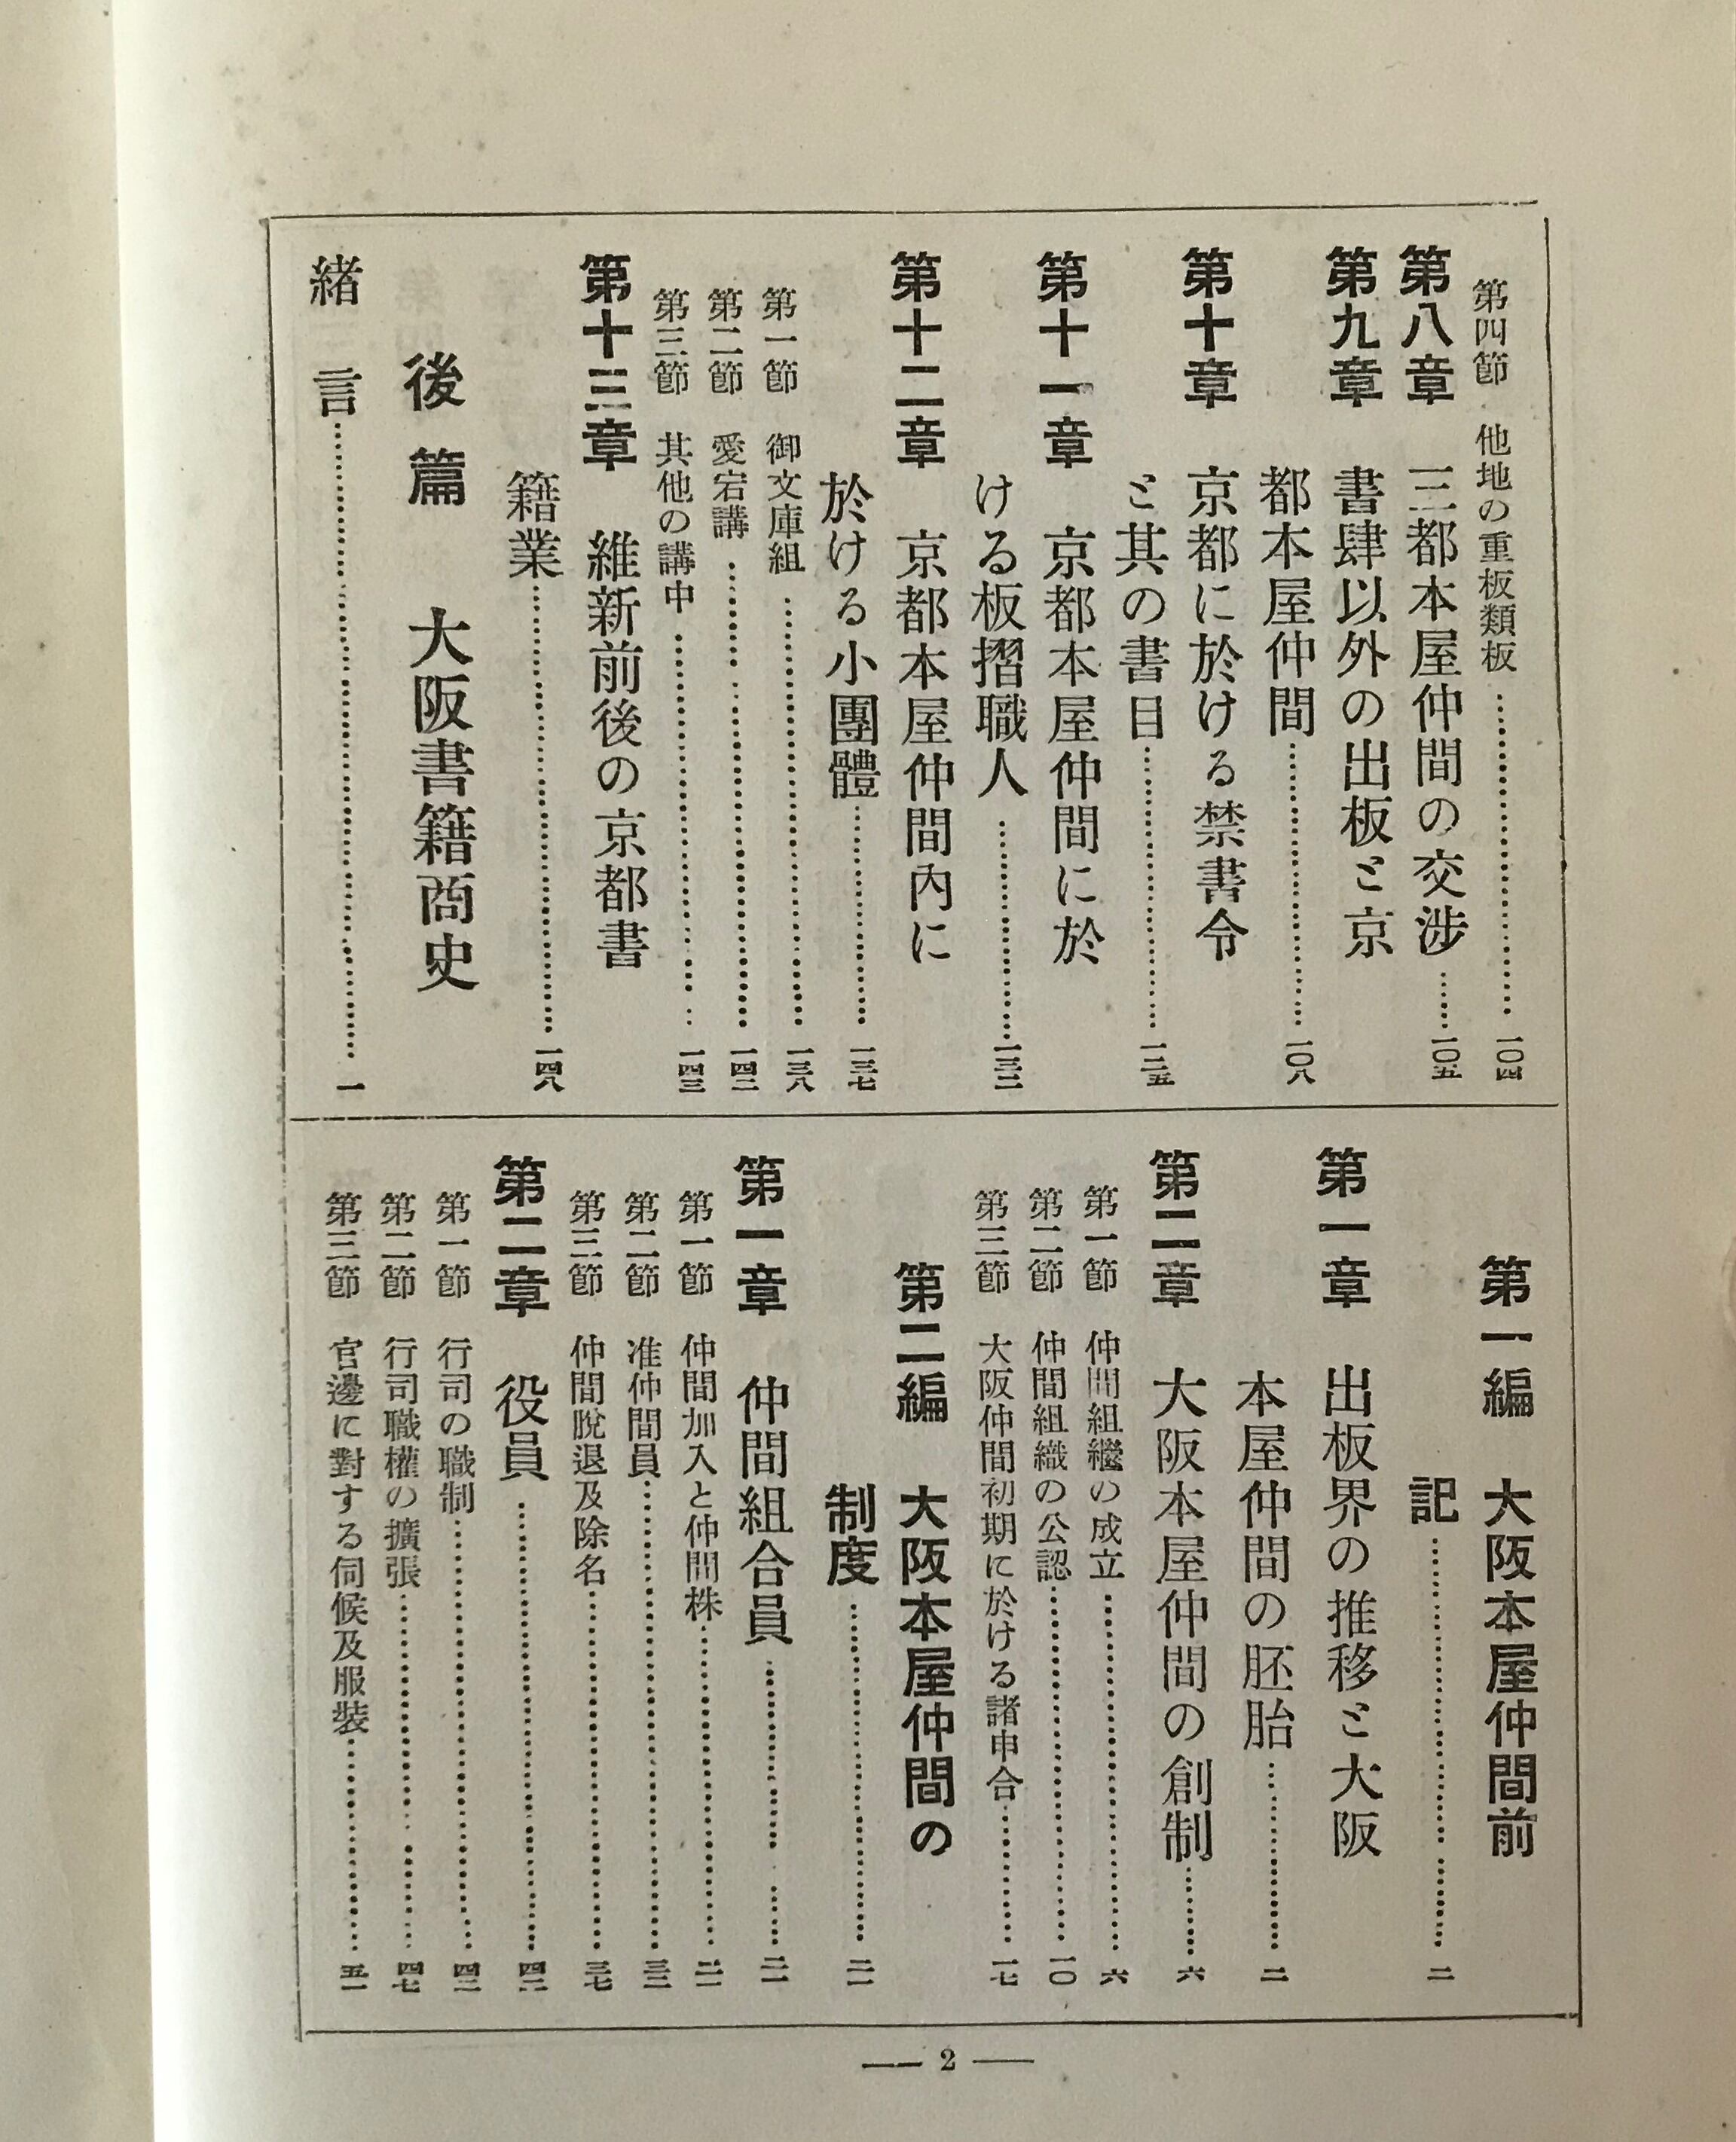 第四節　他地の重板類板……一〇四
第八章　三都本屋仲間の交渉……一〇五
第九章　書肆以外の出板と京
都本屋仲間……一〇八
第十章　京都に於ける禁書令
と其の書目……一二五
第十一章　京都本屋仲間に於
ける板摺職人……一三二
第十二章　京都本屋仲間內に
於ける小團體……一三七
第一節　御文庫組……一三八
第二節　愛宕講……一四二
第三節　其他の講中……一四三
第十三章　維新前後の京都書
籍業……一四八
後篇　大阪書籍商史
緒言……一
第一編　大阪本屋仲間前
記……二
第一章　出板界の推移と大阪
本屋仲間の胚胎……二
第二章　大阪本屋仲間の創制……六
第一節　仲間組繼の成立……六
第二節　仲間組織の公認……一〇
第三節　大阪仲間初期に於ける諸申合……一七
第二編　大阪本屋仲間の
制度……二一
第一章　仲間組合員……二一
第一節　仲間加入と仲間株……二一
第二節　准仲間員……三三
第三節　仲間脫退及除名……三七
第二章　役員……四二
第一節　行司の職制……四二
第二節　行司職權の擴張……四七
第三節　官邊に對する伺候及服裝……五一
— 2 —